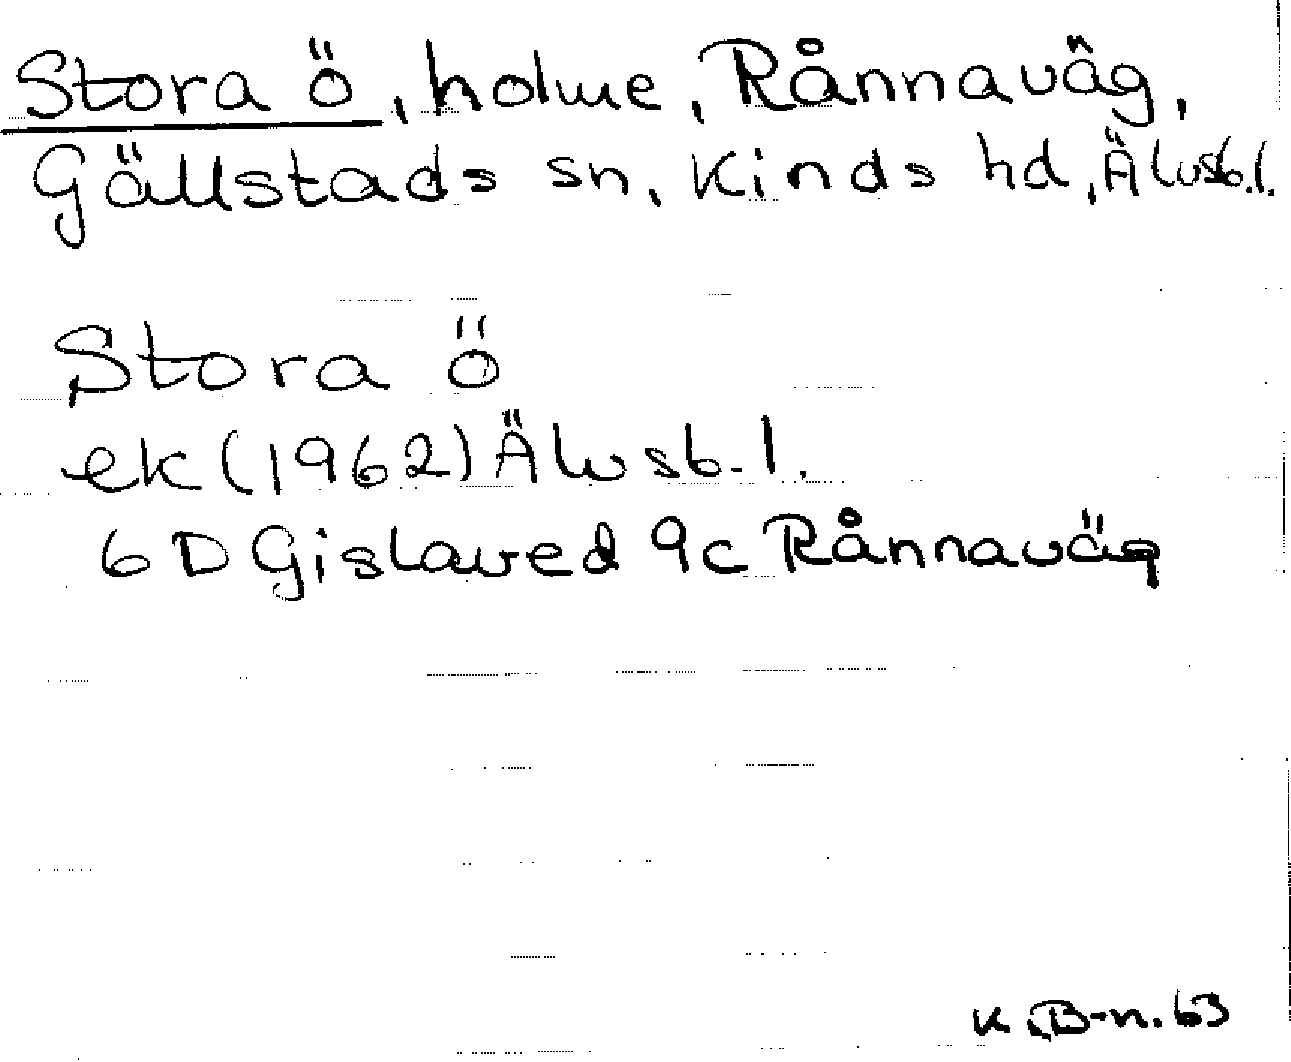 Stora ö, holme, Rånnaväg,
Gällstads sn, Kinds hd, Älvsb.l.
Stora ö
ek (1962) Älvsb.l.
6D Gislaved 9c Rånnaväg
K.B-n. 63